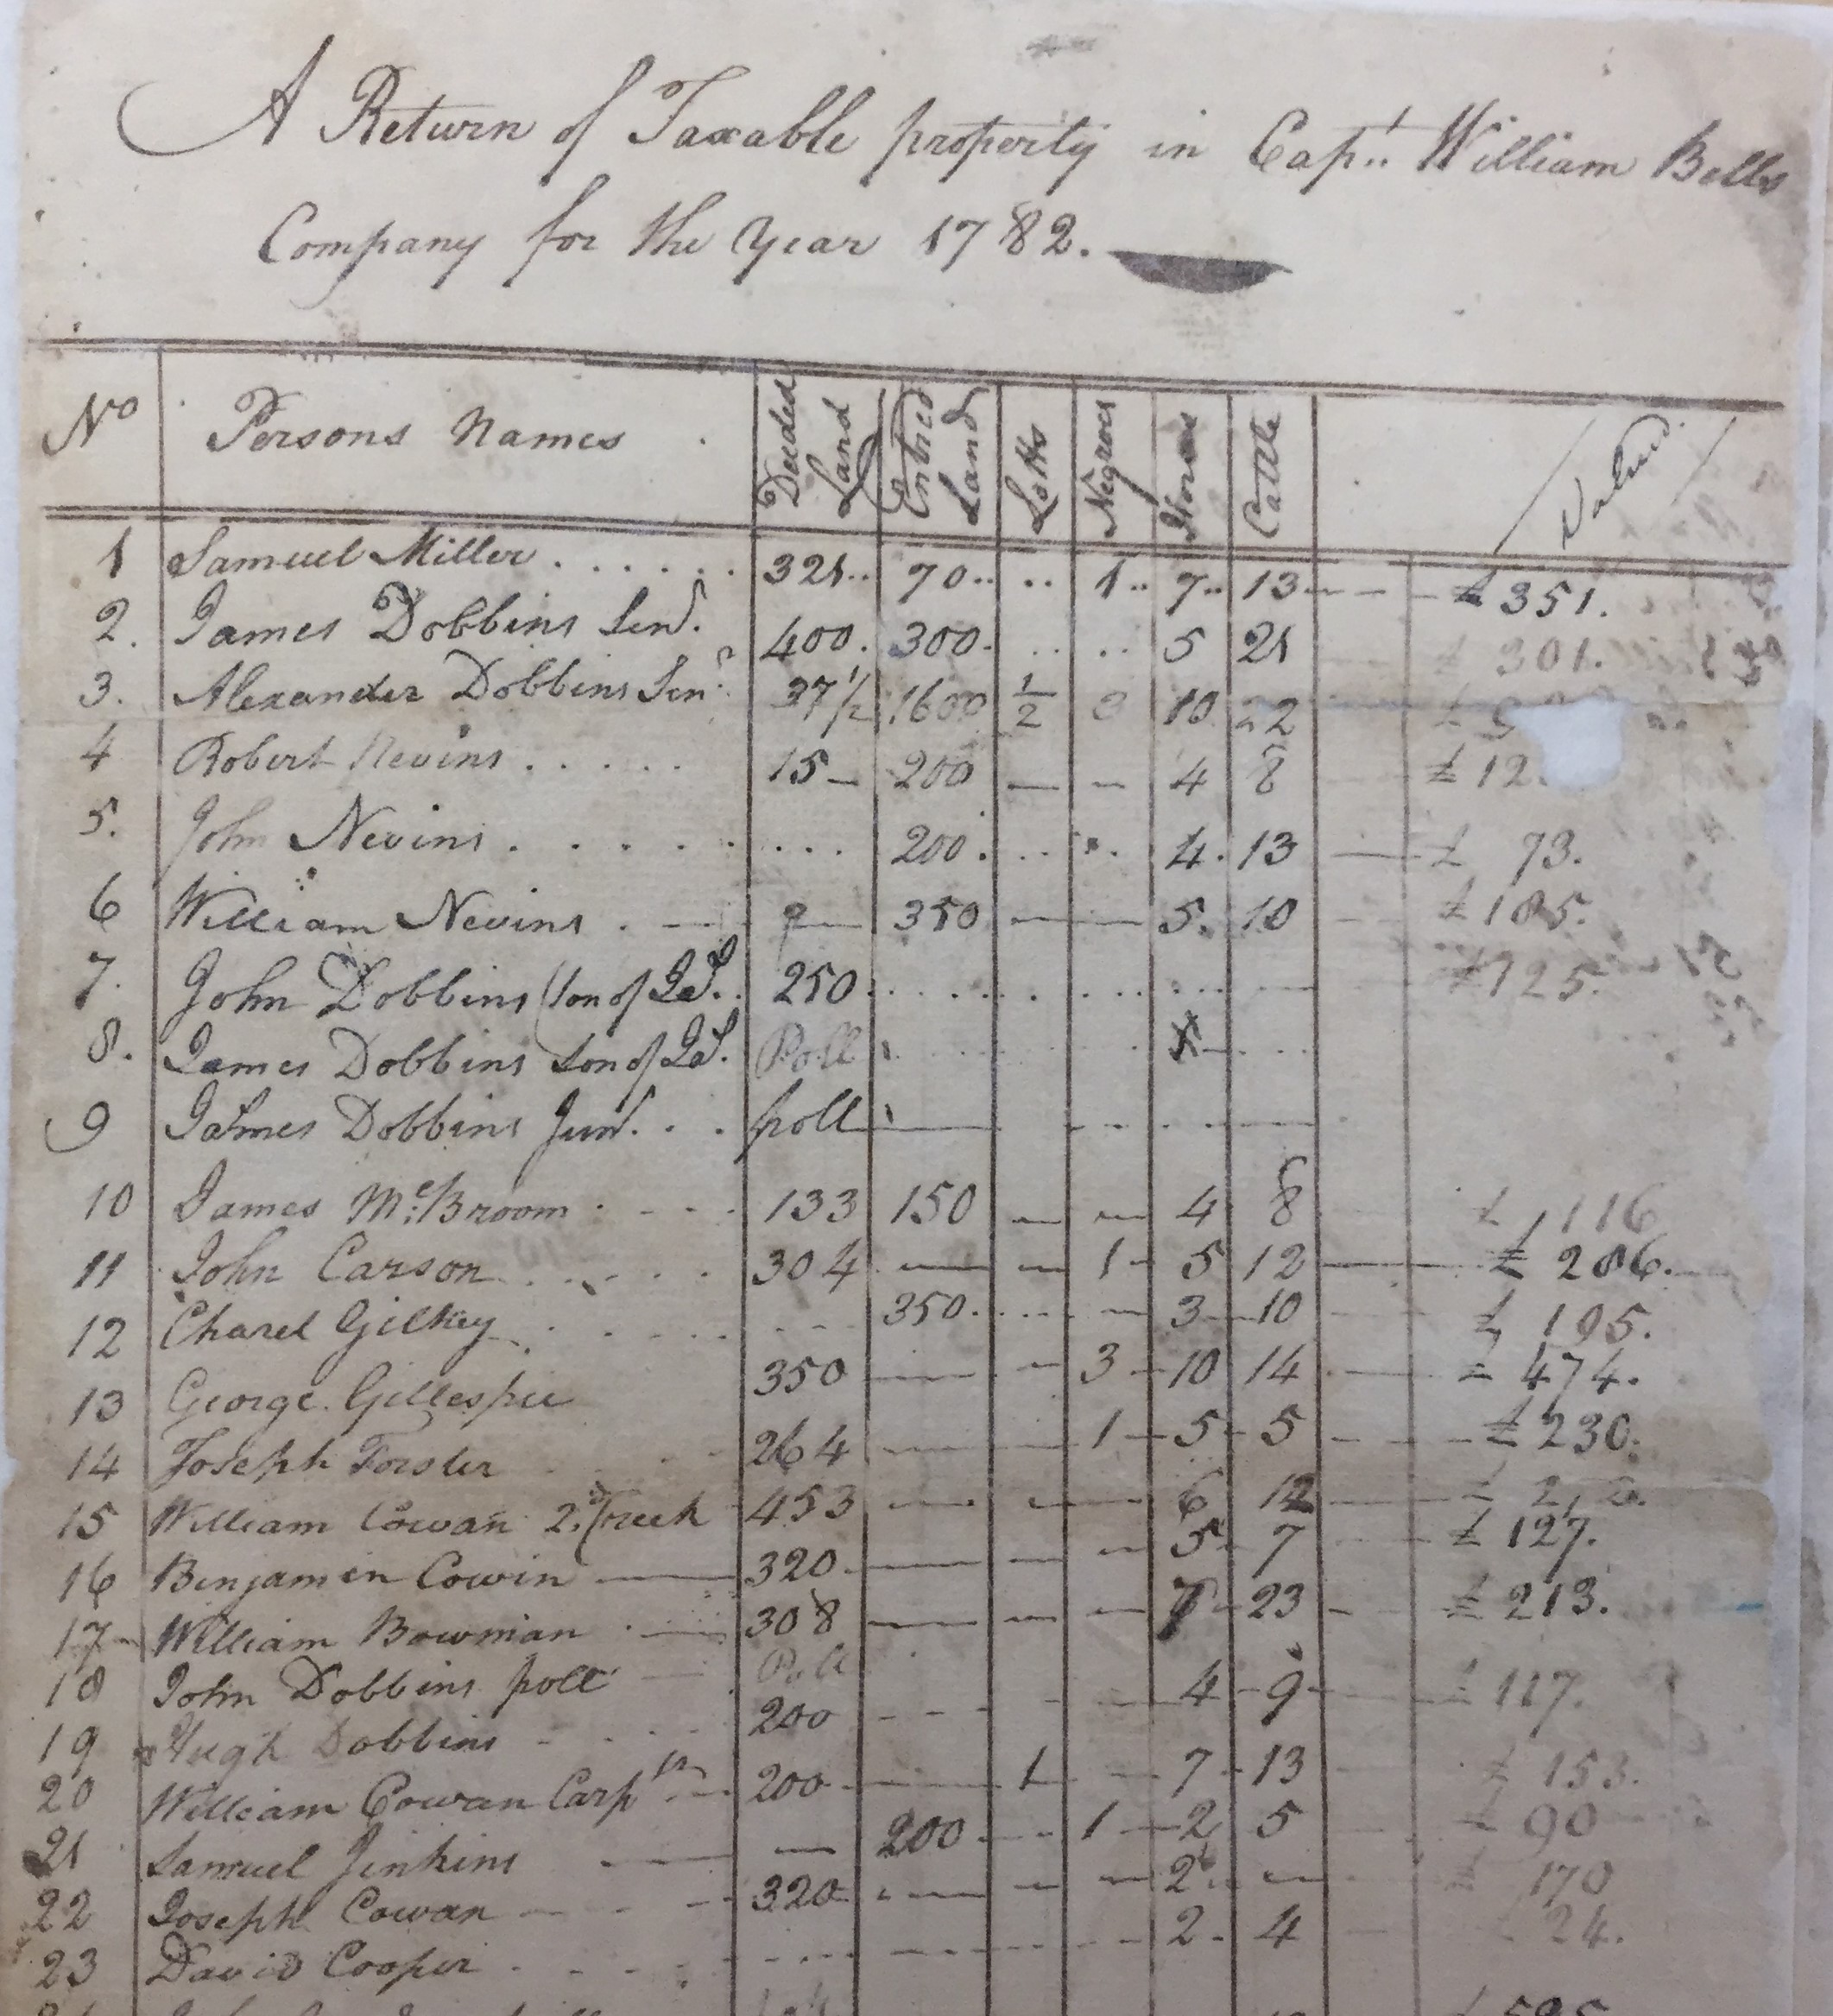 A Return of Taxable property in Capt. William Bells
Company for the Year 1782.
No Persons Names Deeded Land Entred Land Lotts Negroes Horses Cattle Valued
1 Samuel Miller 321 70 1 7 13 £ 351.
2. James Dobbins Senr. 400. 300. 5 21 £ 301.
3. Alexander Dobbins Senr. 37 1/2 1600 1/2 3 10 22 £
4 Robert Nevins 15 200 4 8 £ 12
5. John Nevins 200. 4. 13 £ 73.
6 William Nevins 350 5. 10 £ 185.
7. John Dobbins (son of JS. 250 £ 125.
8. James Dobbins son of JS. Poll
9 James Dobbins Junr. poll
10 James Mc.Broom 133 150 4 8 £ 116
11 John Carson 304 1 5 12 £ 286.
12 Charel Gilkey 350. 3 10 £ 195.
13 George Gillespie 350 3 10 14 £ 474.
14 Joseph Forster 264 1 5 5 £ 230.
15 William Cowan 2d. Creek 453 6 12 £
16 Benjamin Cowin 320 5 7 £ 127.
17 William Bowman 308 7 23 £ 213.
18 John Dobbins poll Poll
19 Hugh Dobbins 200 4 9 £ 117.
20 William Cowan Carptr 200 1 7 13 £ 153.
21 Samuel Jinkins 200 1 2 5 £ 90
22 Joseph Cowan 320 2 170
23 David Cooper 2 4 24.
£ 595